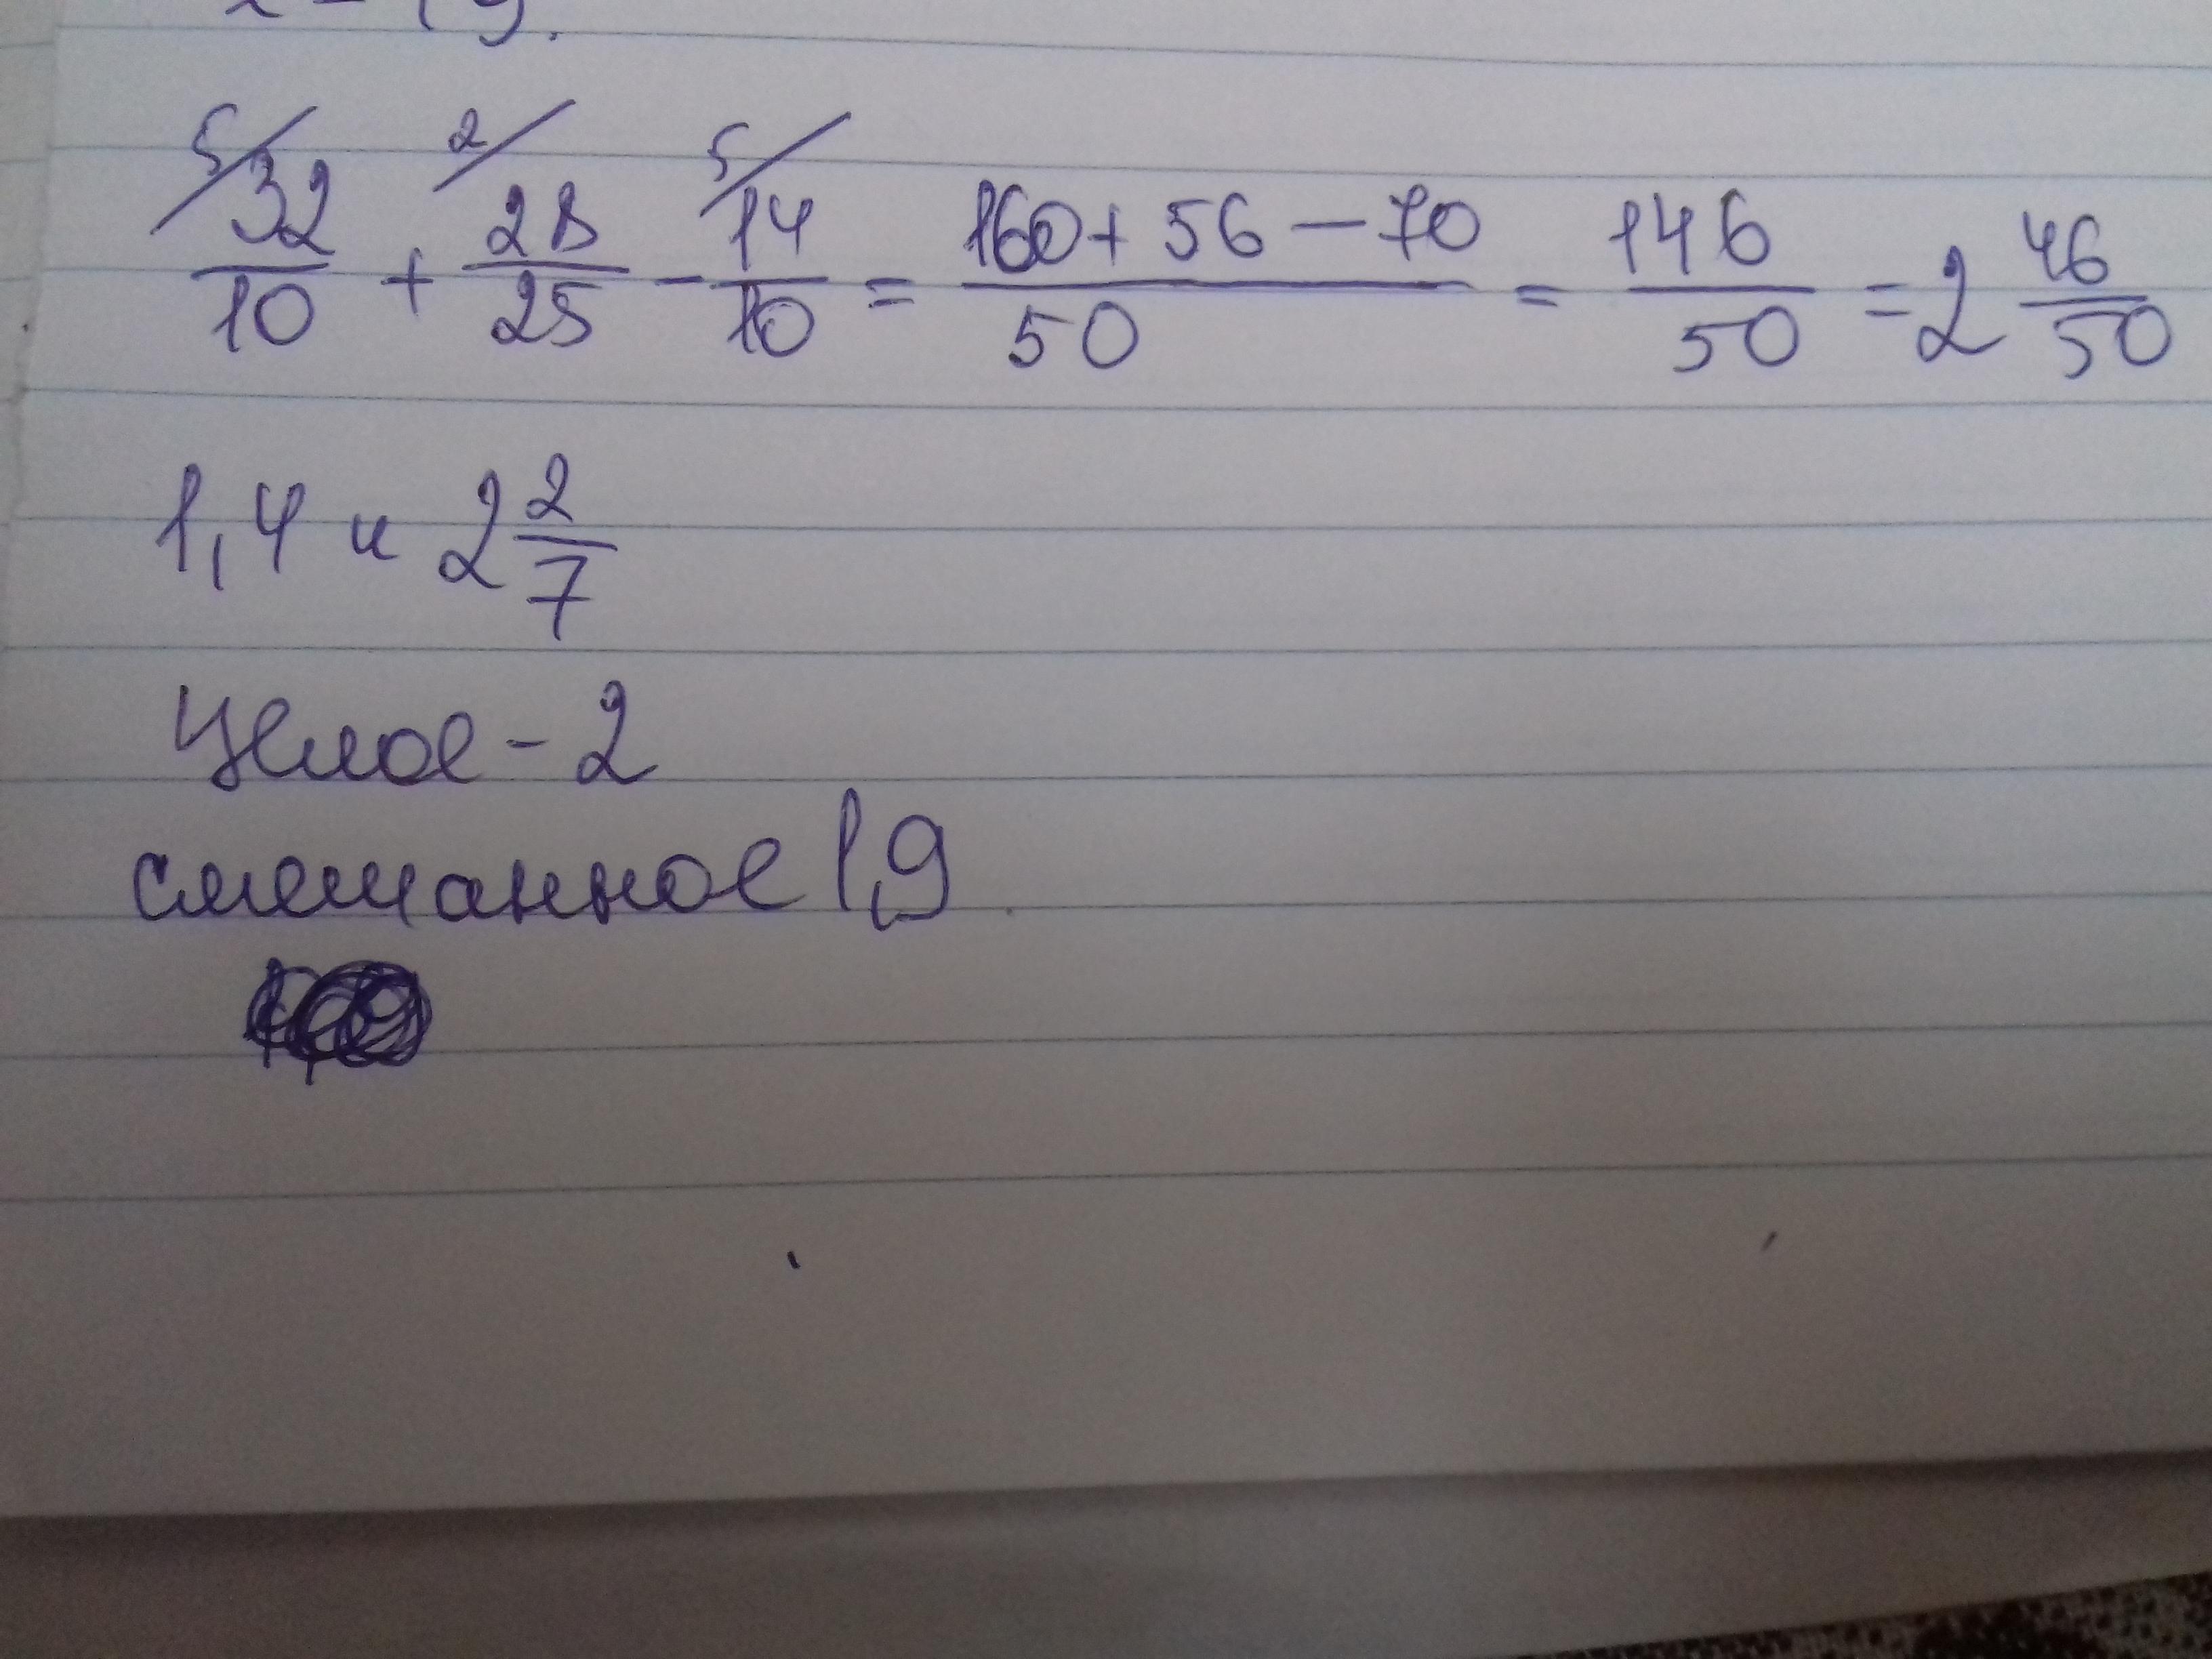 5/ 2/ 5/
32/10 + 28/25 - 14/10 = 160+56-70/50 = 146/50 = 2 46/50
1,4 и 2 2/7
Целое - 2
смешанное 1,9